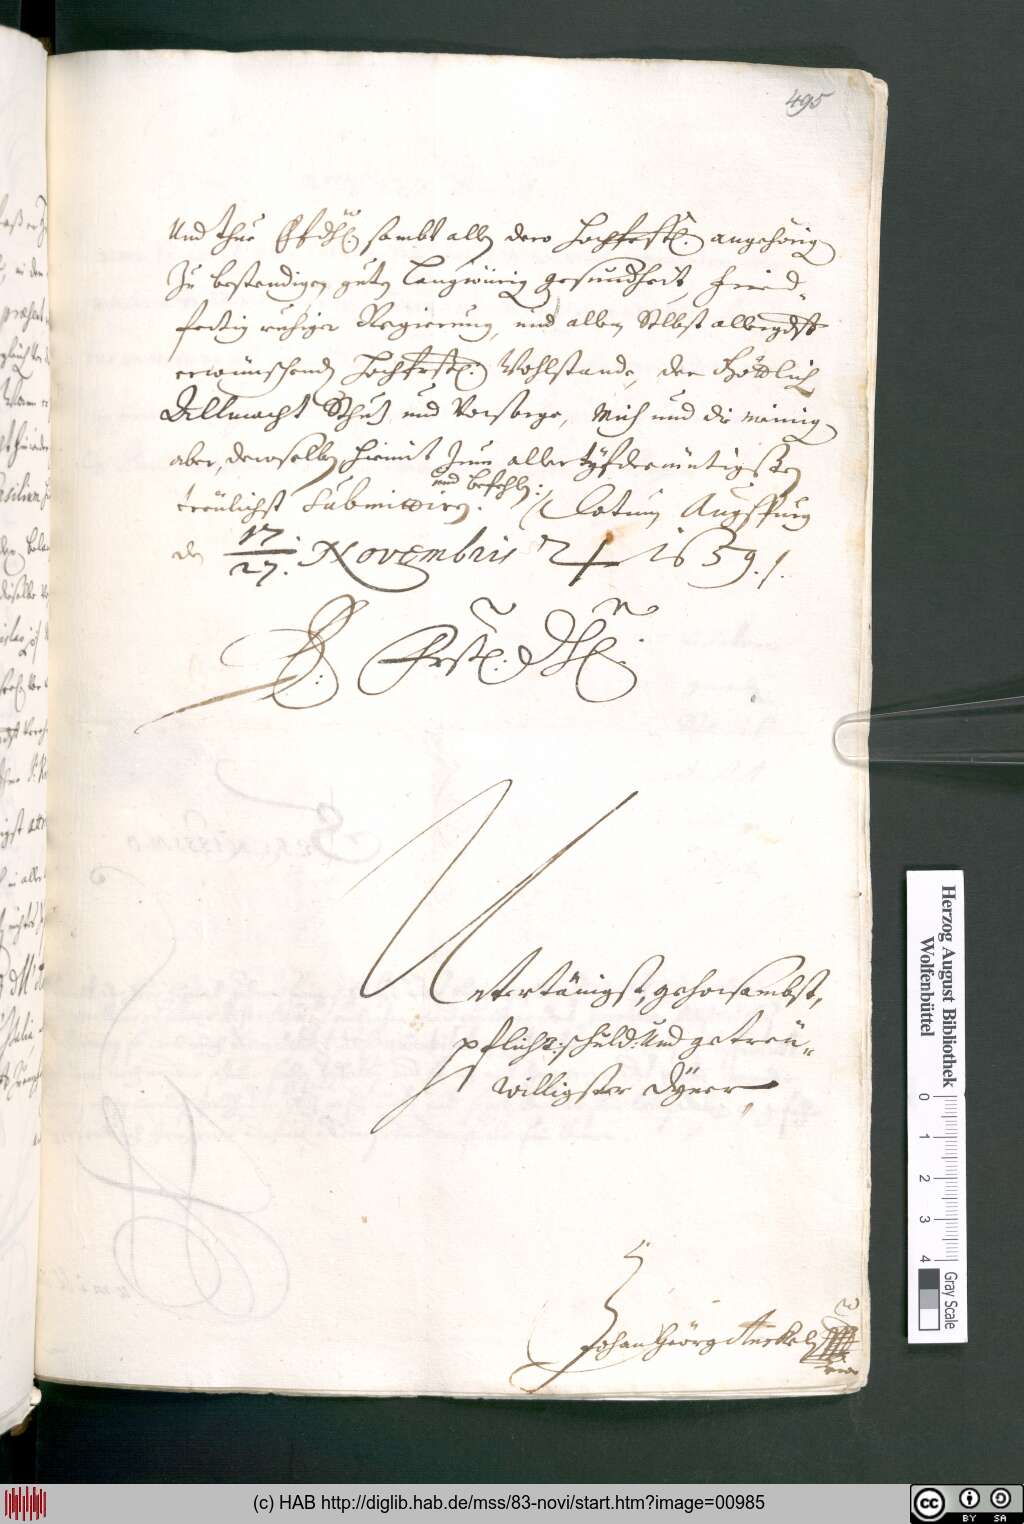 495
Und thue EfdHl. sambt allen dero Hochfrstl. angehörig
Zu bestendigen guten Langwürig gesundheit, Fried-
fertig ruhiger Regierung, und allem Selbst allergdst
erwünschenden Hochfrstl. Wohlstande, der Göttlich
Allmacht Schutz und Vorsorge, Mich und die meinig
aber, deroselben hiemit zum aller
und befehlen:
treulichst Submittiren. Datum Augspurg
den 17/27. Novembris 1659.
E. Frstl. DHl.
Untertänigst, gehorsambst,
pflicht: schuld: Und getreu-
willigster Dyner
Johan Georg Anckel
Herzog August Bibliothek
Wolfenbüttel
0 1 2 3 4
Gray Scale
(c) HAB http://diglib.hab.de/mss/83-novi/start.htm?image=00985
cc BY SA